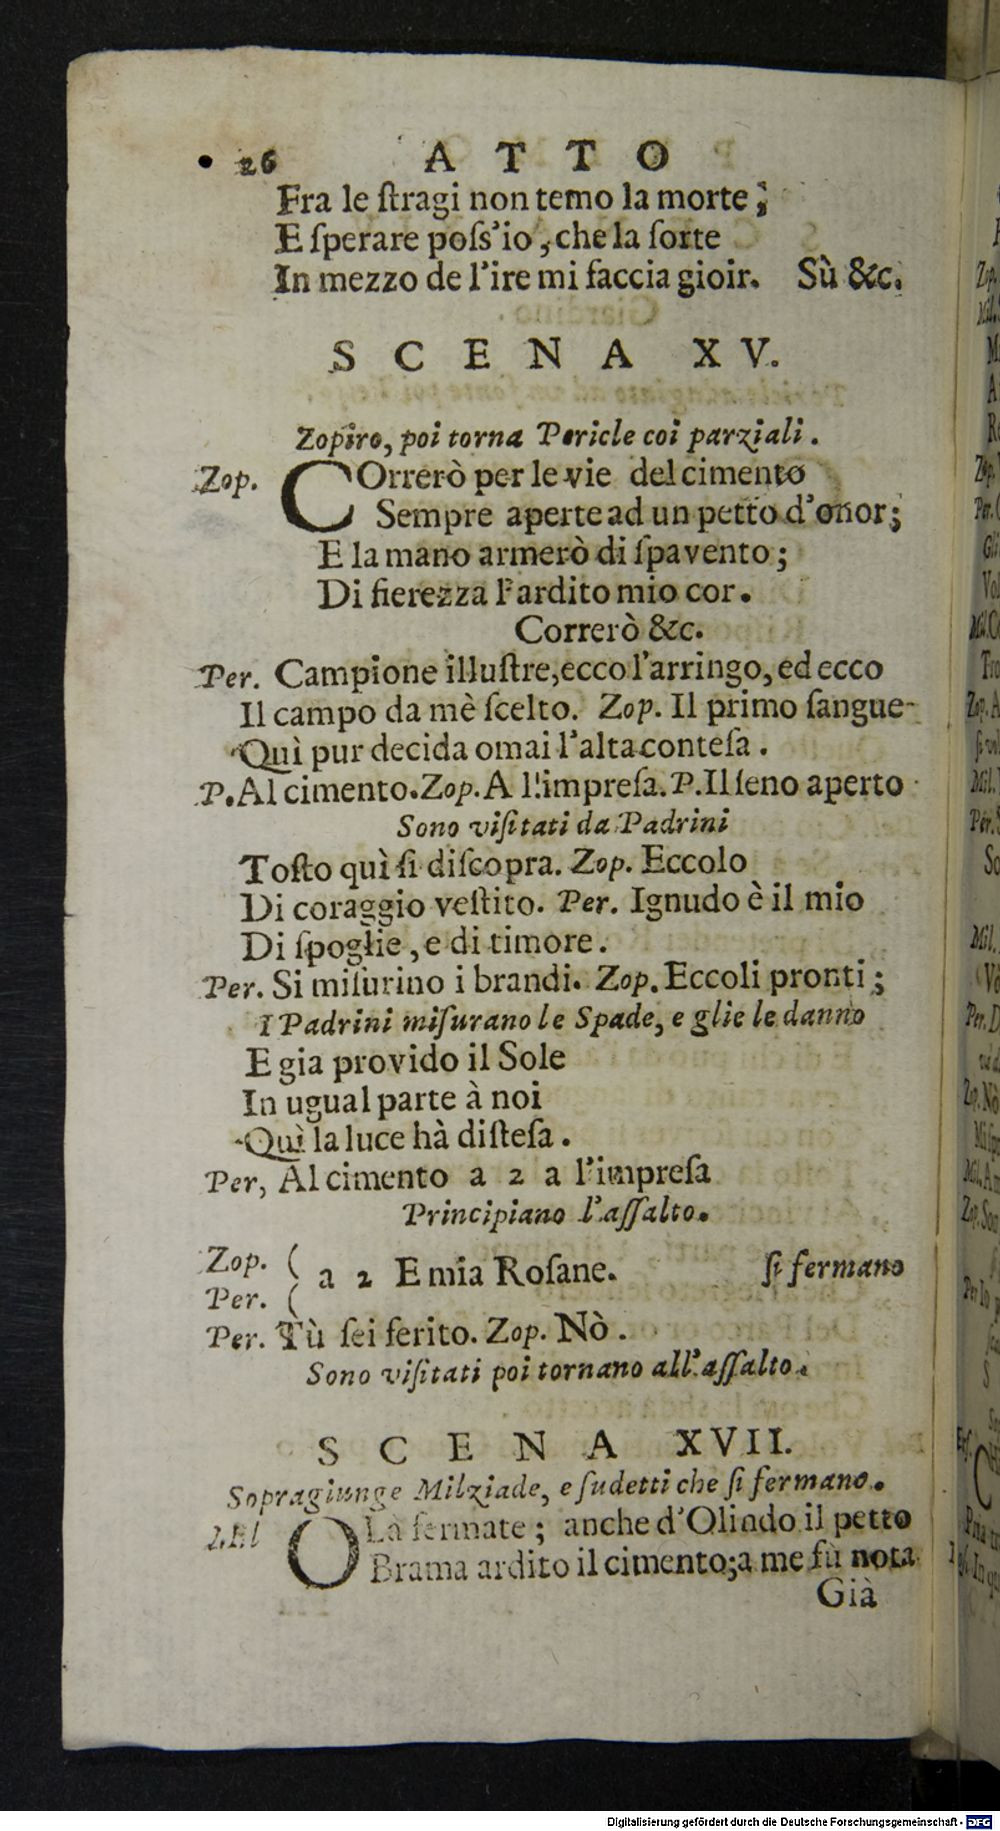 26 ATTO
Fra le ſtragi non temo la morte;
E ſperare poſs'io, che la ſorte
In mezzo de l'ire mi faccia gioir. Sù &c.
SCENA XV.
Zopiro, poi torna Pericle coi parziali.
Zop. COrrerò per le vie del cimento
Sempre aperte ad un petto d'onor;
E la mano armerò di ſpavento;
Di fierezza l'ardito mio cor.
Correrò &c.
Per. Campione illuſtre, ecco l'arringo, ed ecco
Il campo da mè ſcelto. Zop. Il primo ſangue
Quì pur decida omai l'alta conteſa.
P. Al cimento. Zop. A l'impreſa. P. Il ſeno aperto
Sono viſitati da Padrini
Toſto quì ſi diſcopra. Zop. Eccolo
Di coraggio veſtito. Per. Ignudo è il mio
Di ſpoglie, e di timore.
Per. Si miſurino i brandi. Zop. Eccoli pronti;
I Padrini miſurano le Spade, e glie le danno
E gia provido il Sole
In ugual parte à noi
Quì la luce hà diſteſa.
Per, Al cimento a 2 a l'impreſa
Principiano l'aſſalto.
Zop. (
Per. ( a 2 E mia Roſane. ſi fermano
Per. Tù ſei ferito. Zop. Nò.
Sono viſitati poi tornano all'aſſalto.
SCENA XVII.
Sopragiunge Milziade, e ſudetti che ſi fermano.
OLà fermate; anche d'Olindo il petto
Brama ardito il cimento; a me fù nota
Già
Digitalisierung gefördert durch die Deutsche Forschungsgemeinschaft - DFG